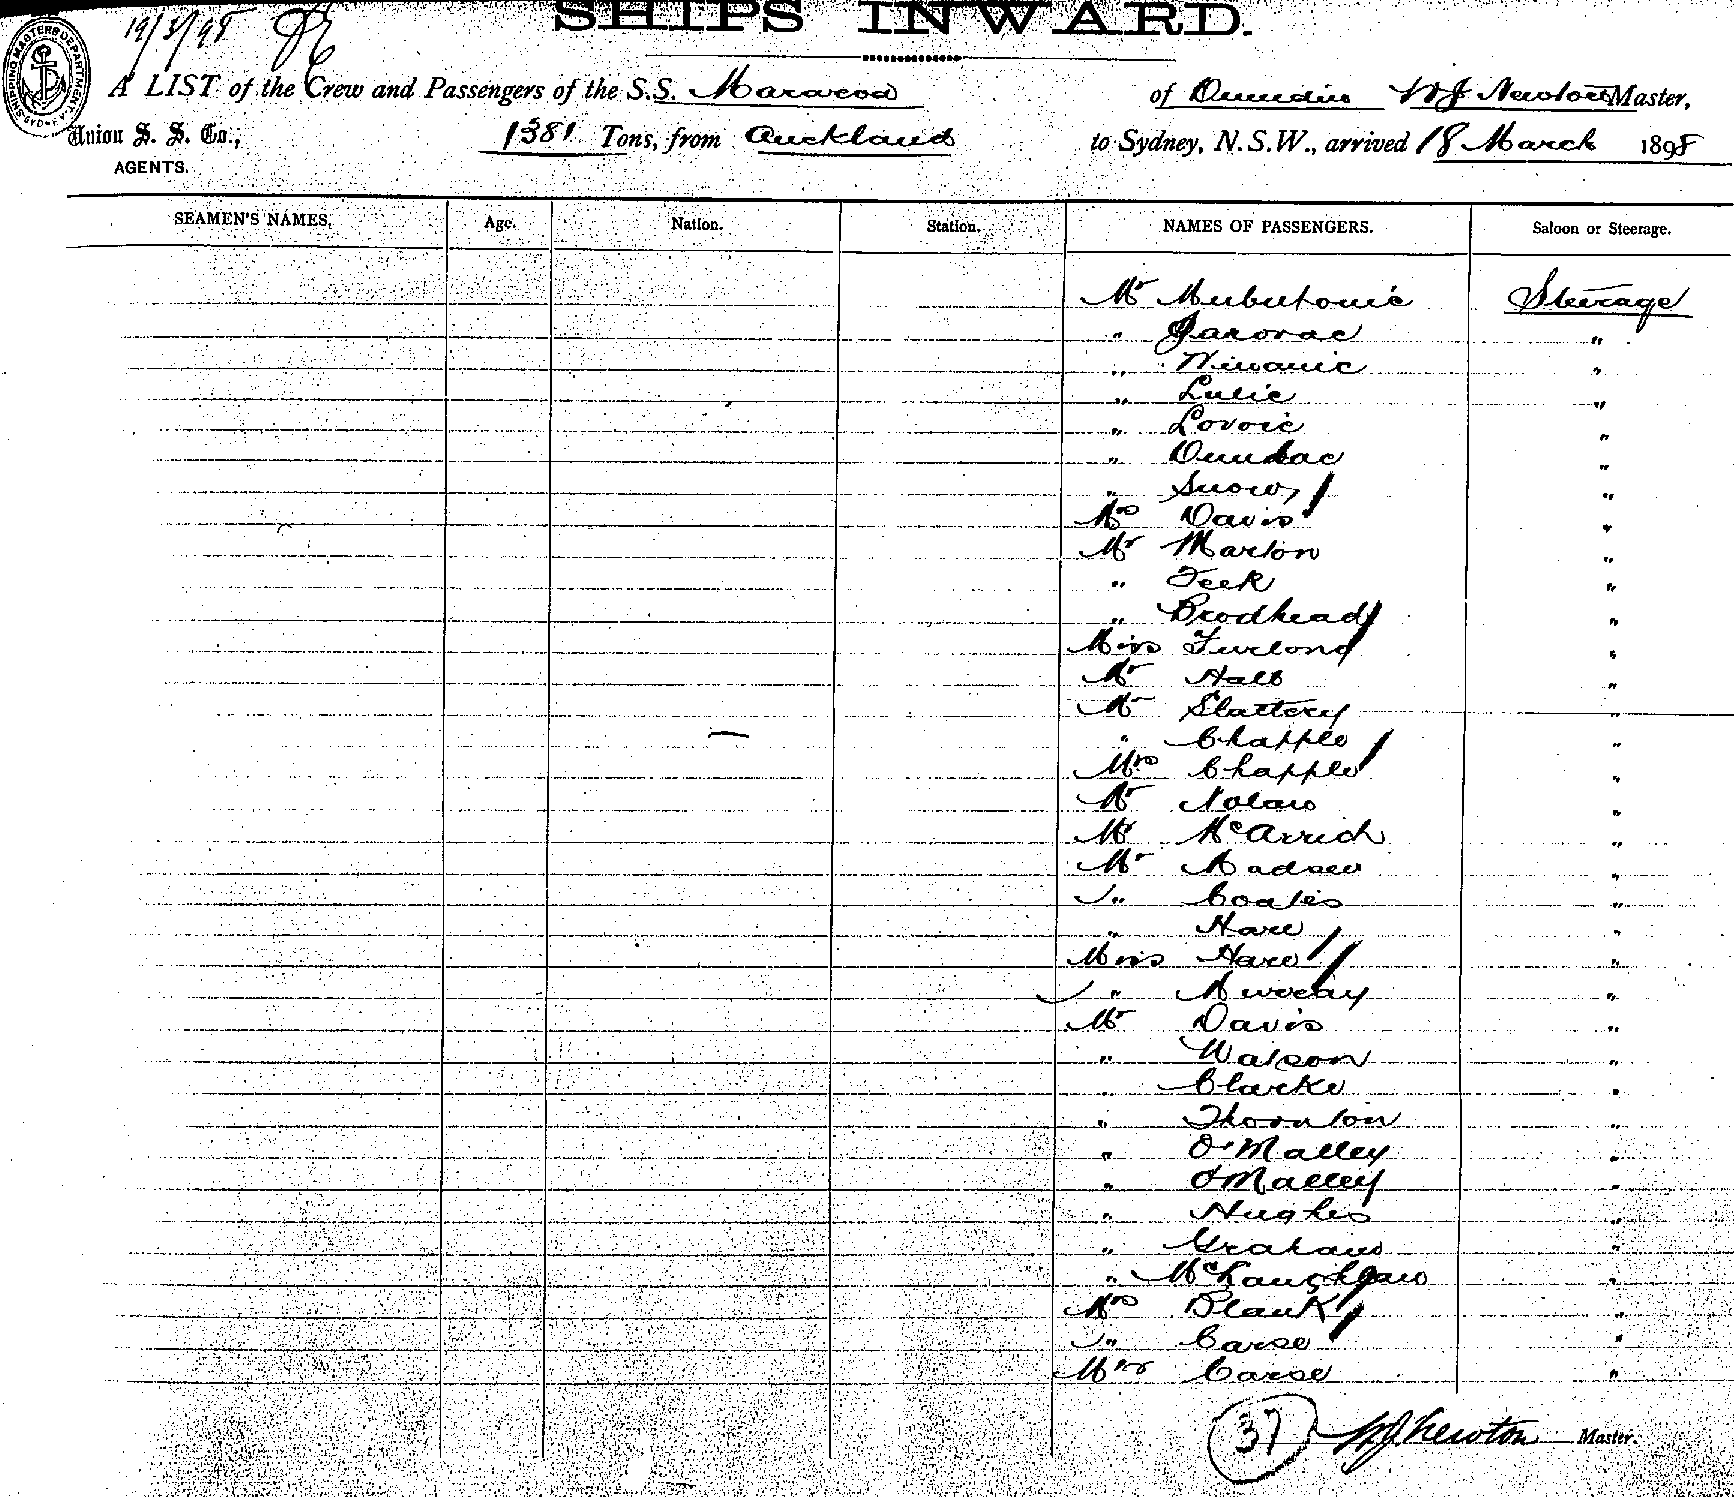 19/3/98
SHIPS INWARD.
A LIST of the Crew and Passengers of the S.S. Mararoa of Dunedin W J Newton Master,
Union S. S. Co., 1381 Tons, from Auckland to Sydney, N.S.W., arrived 18 March 1898
AGENTS.
SEAMEN'S NAMES. Age. Nation. Station. NAMES OF PASSENGERS. Saloon or Steerage.
Mr Steerage
" "
" "
" Lulic "
" Lovoic "
" "
" Snow "
Mrs Davis "
Mr Marton "
" Teek "
" Brodhead "
Miss Furlong "
Mr Hall "
Mr Slattery "
" Chapple "
Mrs Chapple "
Mr Nolan "
Mr McArrich "
Mr Madsen "
" Coates "
" Hare "
Miss Hare "
" Murray "
Mr Davis "
" Watson "
" Clarke "
" Thornton "
" O'Malley "
" O'Malley "
" Hughes "
" Graham "
" McLaughlan "
Mrs Blank "
" Carse "
Miss Carse "
37 W J Newton Master.